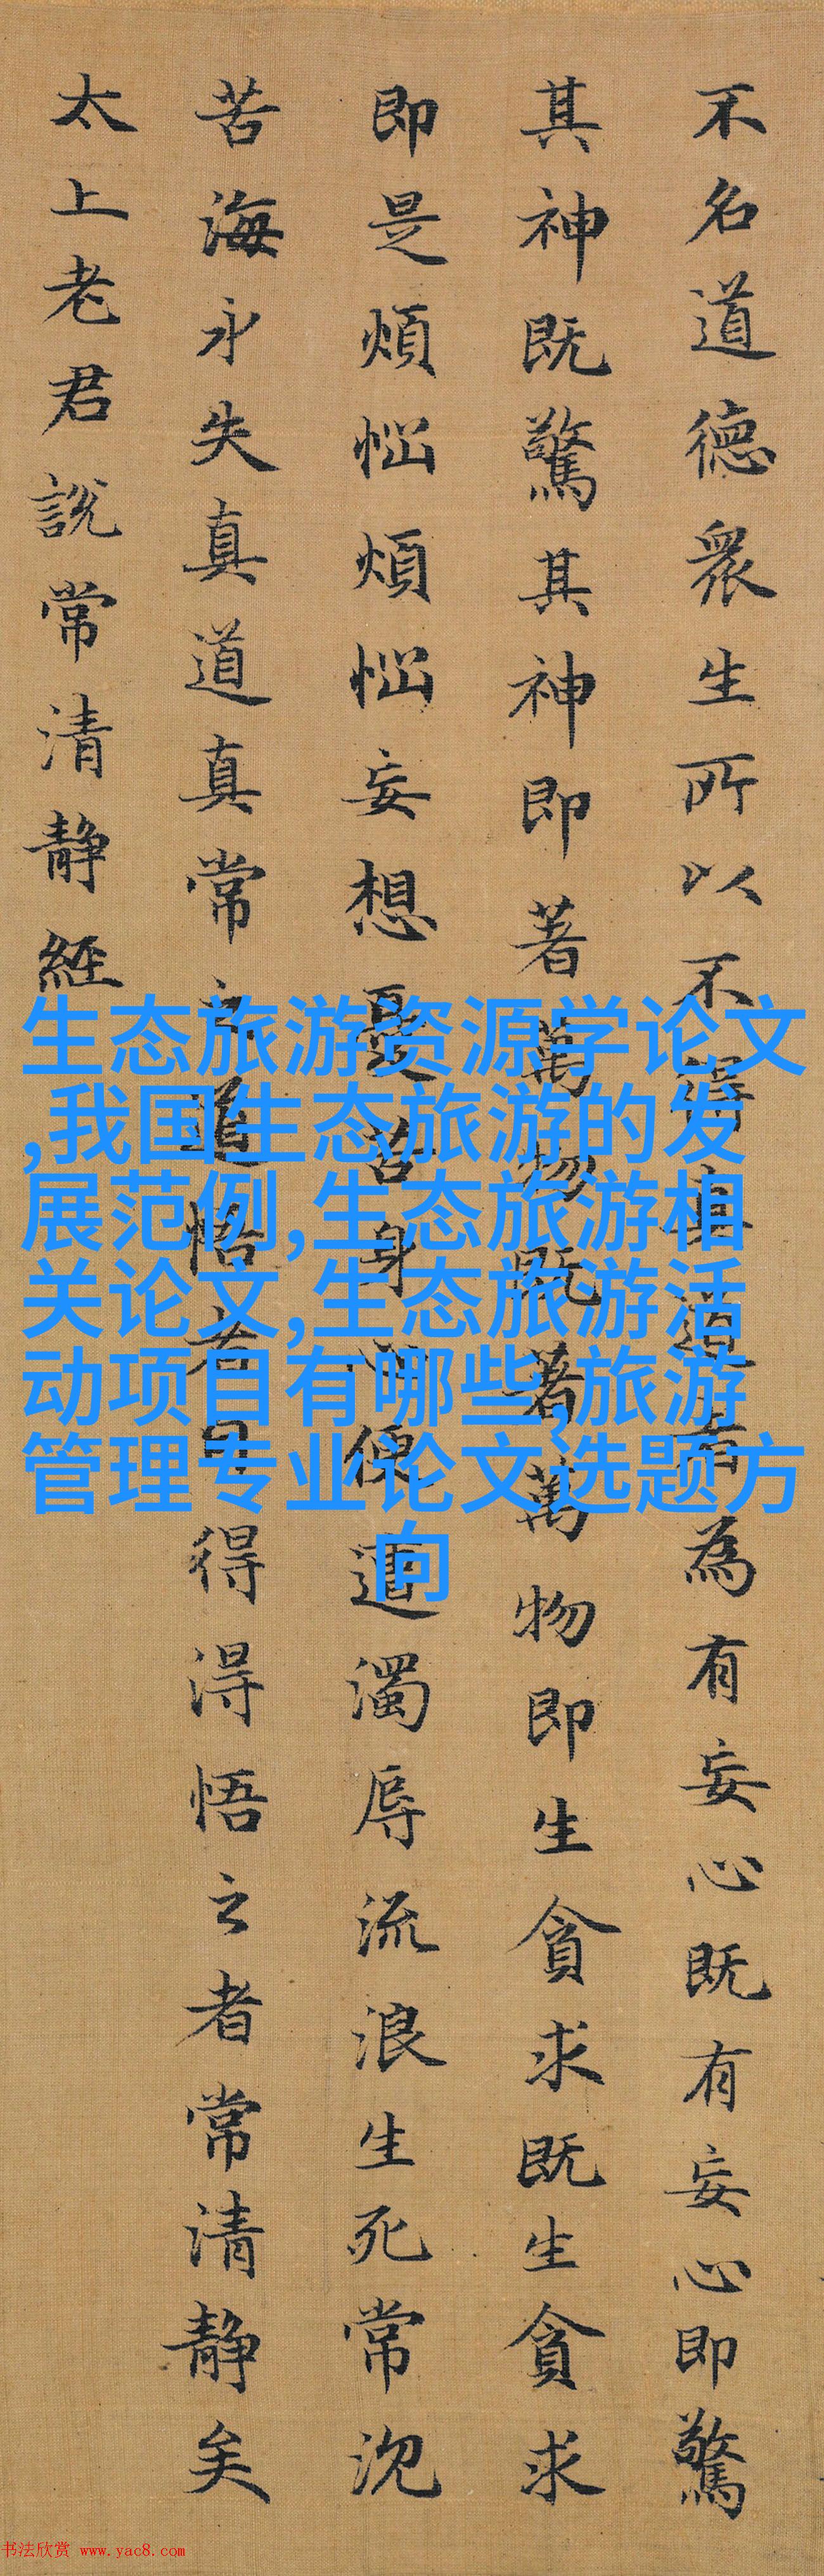 不名道德衆生所以不得真道者為有妄心既有妄心即驚
其神既驚其神即著萬物既著萬物即生貪求既生貪求
即是煩惱煩惱妄想憂苦身心便遭濁辱流浪生死常沉
苦海永失真道真常之道悟者自得得悟之者常清静矣
太上老君說常清静經
生态旅游资源学论文
,我国生态旅游的发
展范例,生态旅游相
关论文,生态旅游活
动项目有哪些,旅游
管理专业论文选题方
向
书法欣赏 www.yac8.com